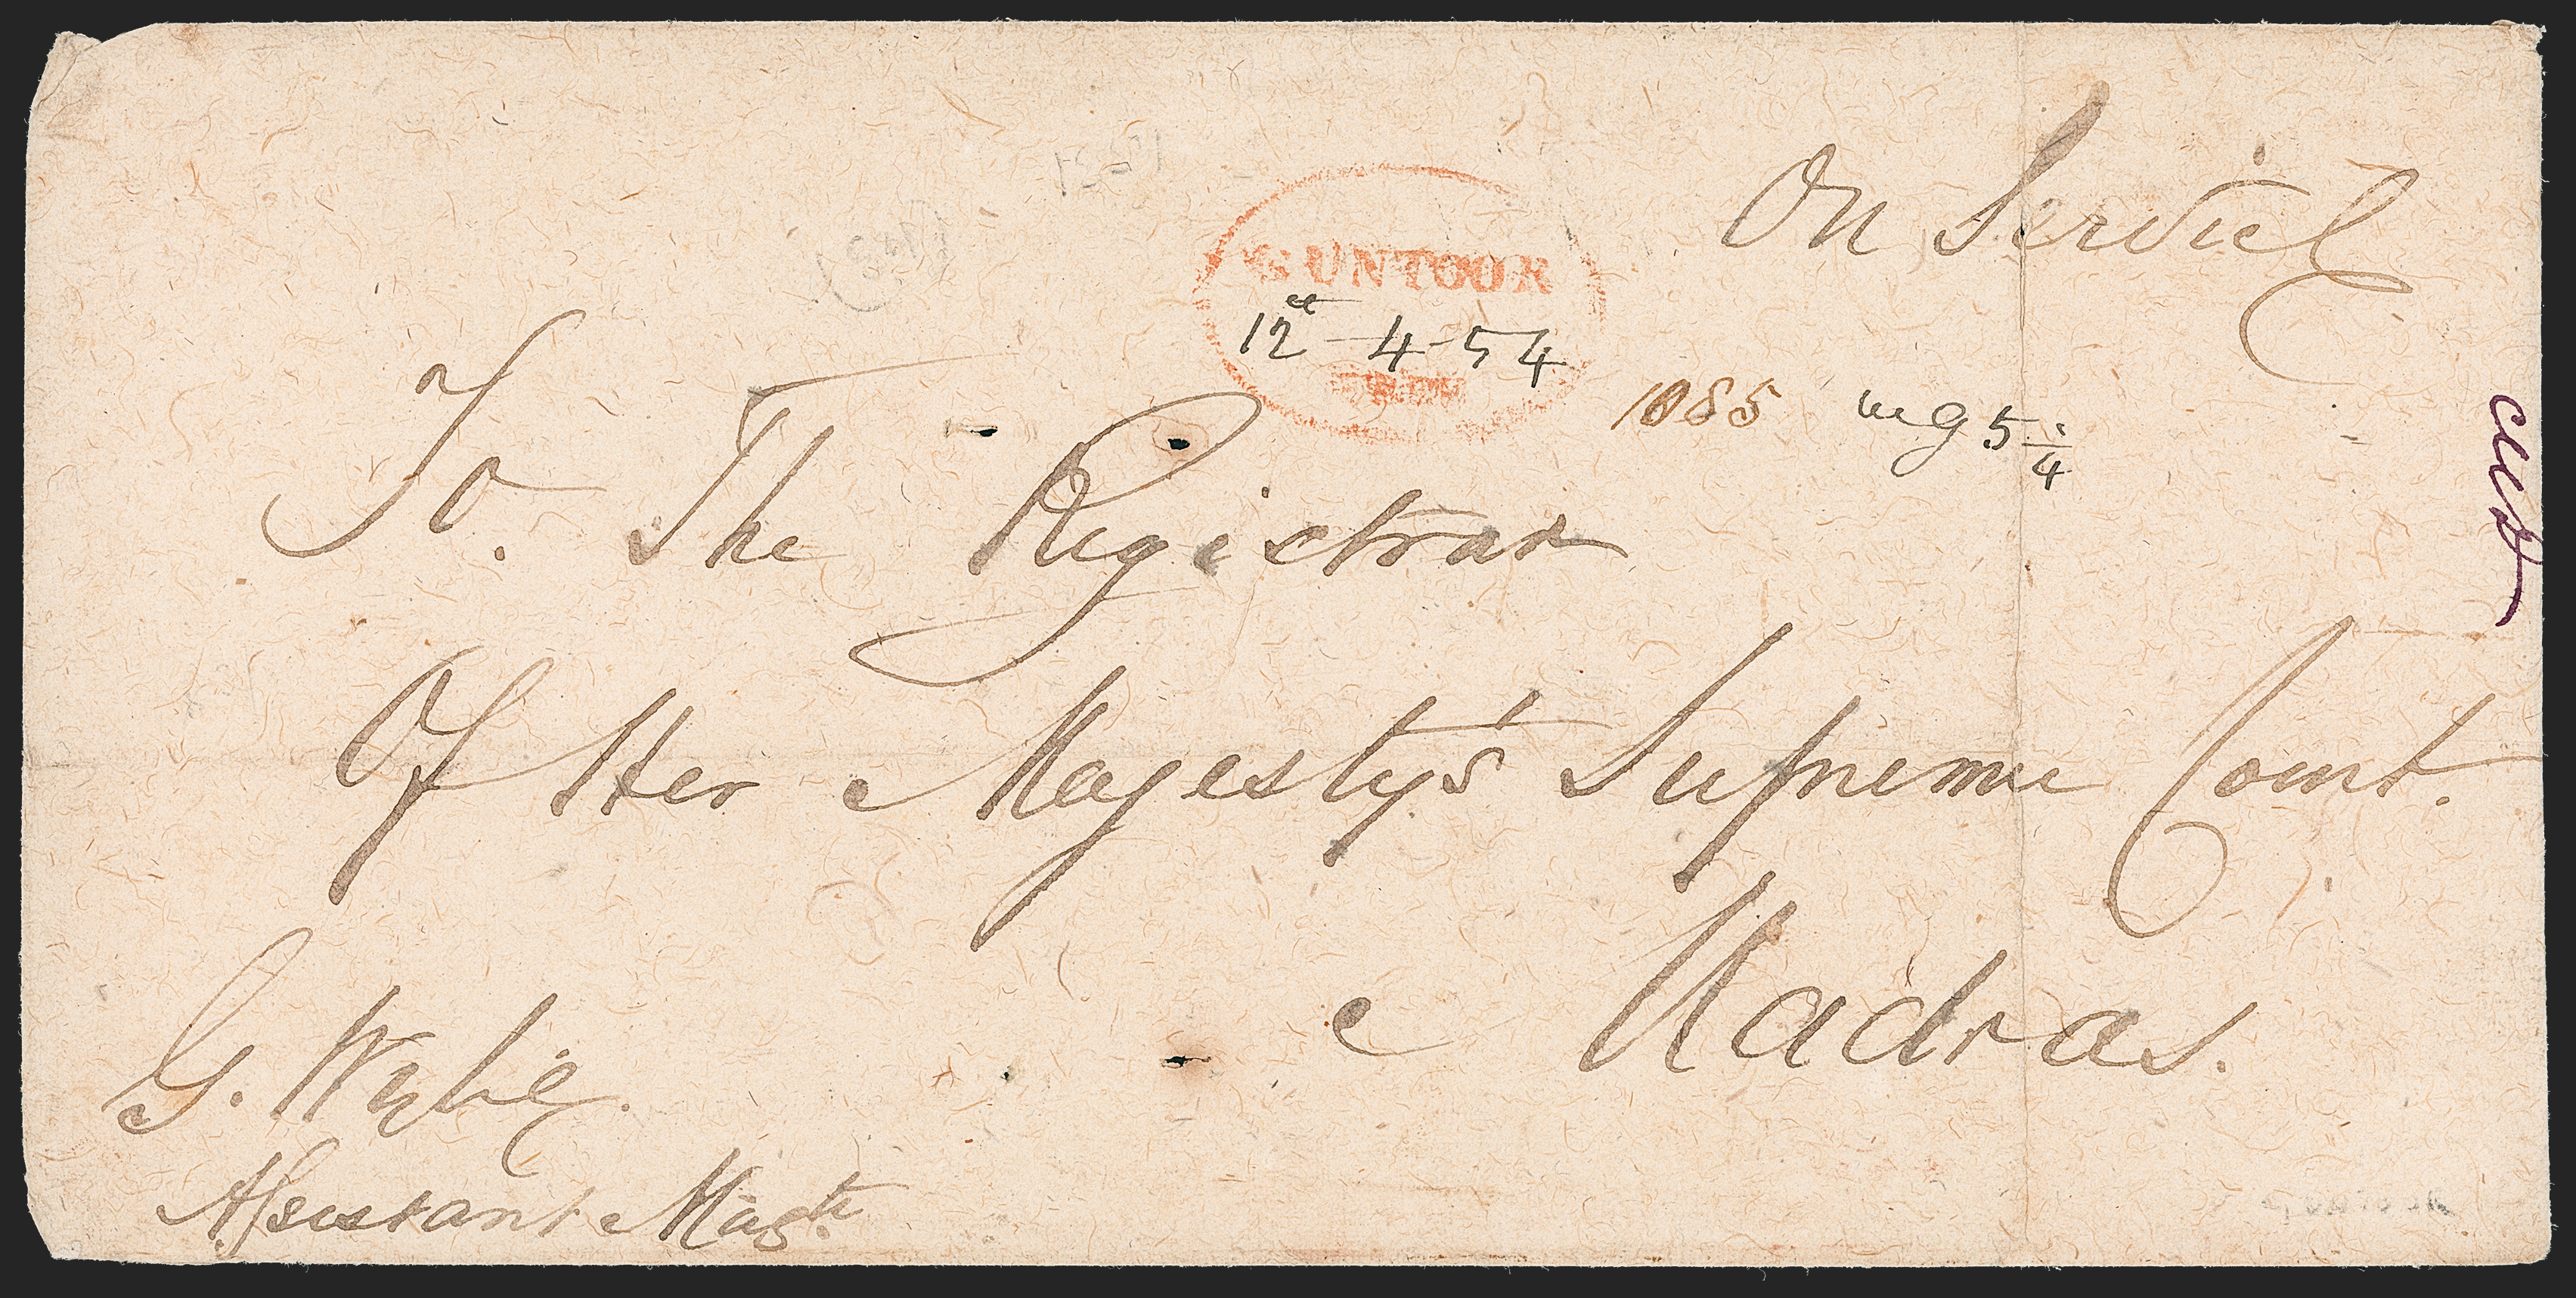 On Service
GUNTOOR
12th - 4 - 54
1085 wg 5 1/4
To. The Registrar
Of Her Majesty's Supreme Court.
Madras.
G. Wylie.
Assistant Magte